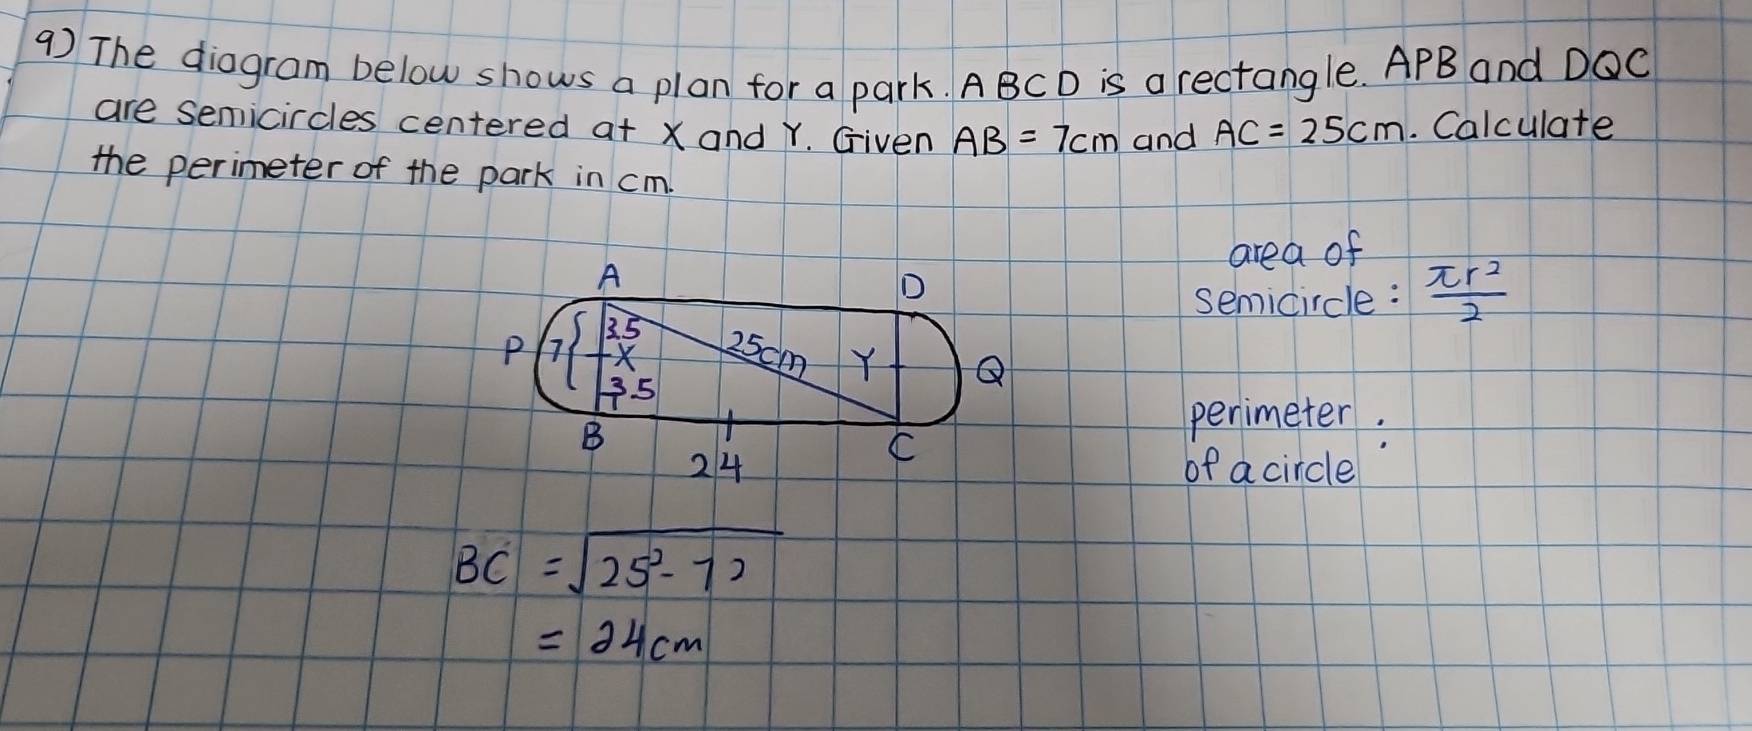 9) The diagram below shows a plan for a park. ABCD is a rectangle. APB and DQC
are semicircles centered at X and Y. Given AB = 7cm and AC = 25cm. Calculate
the perimeter of the park in cm.
area of
semicircle : πr²/2
A
D
P
7
3.5
X
3.5
25cm
Y
Q
B
C
24
perimeter :
of a circle
BC = √25² - 7²
= 24cm